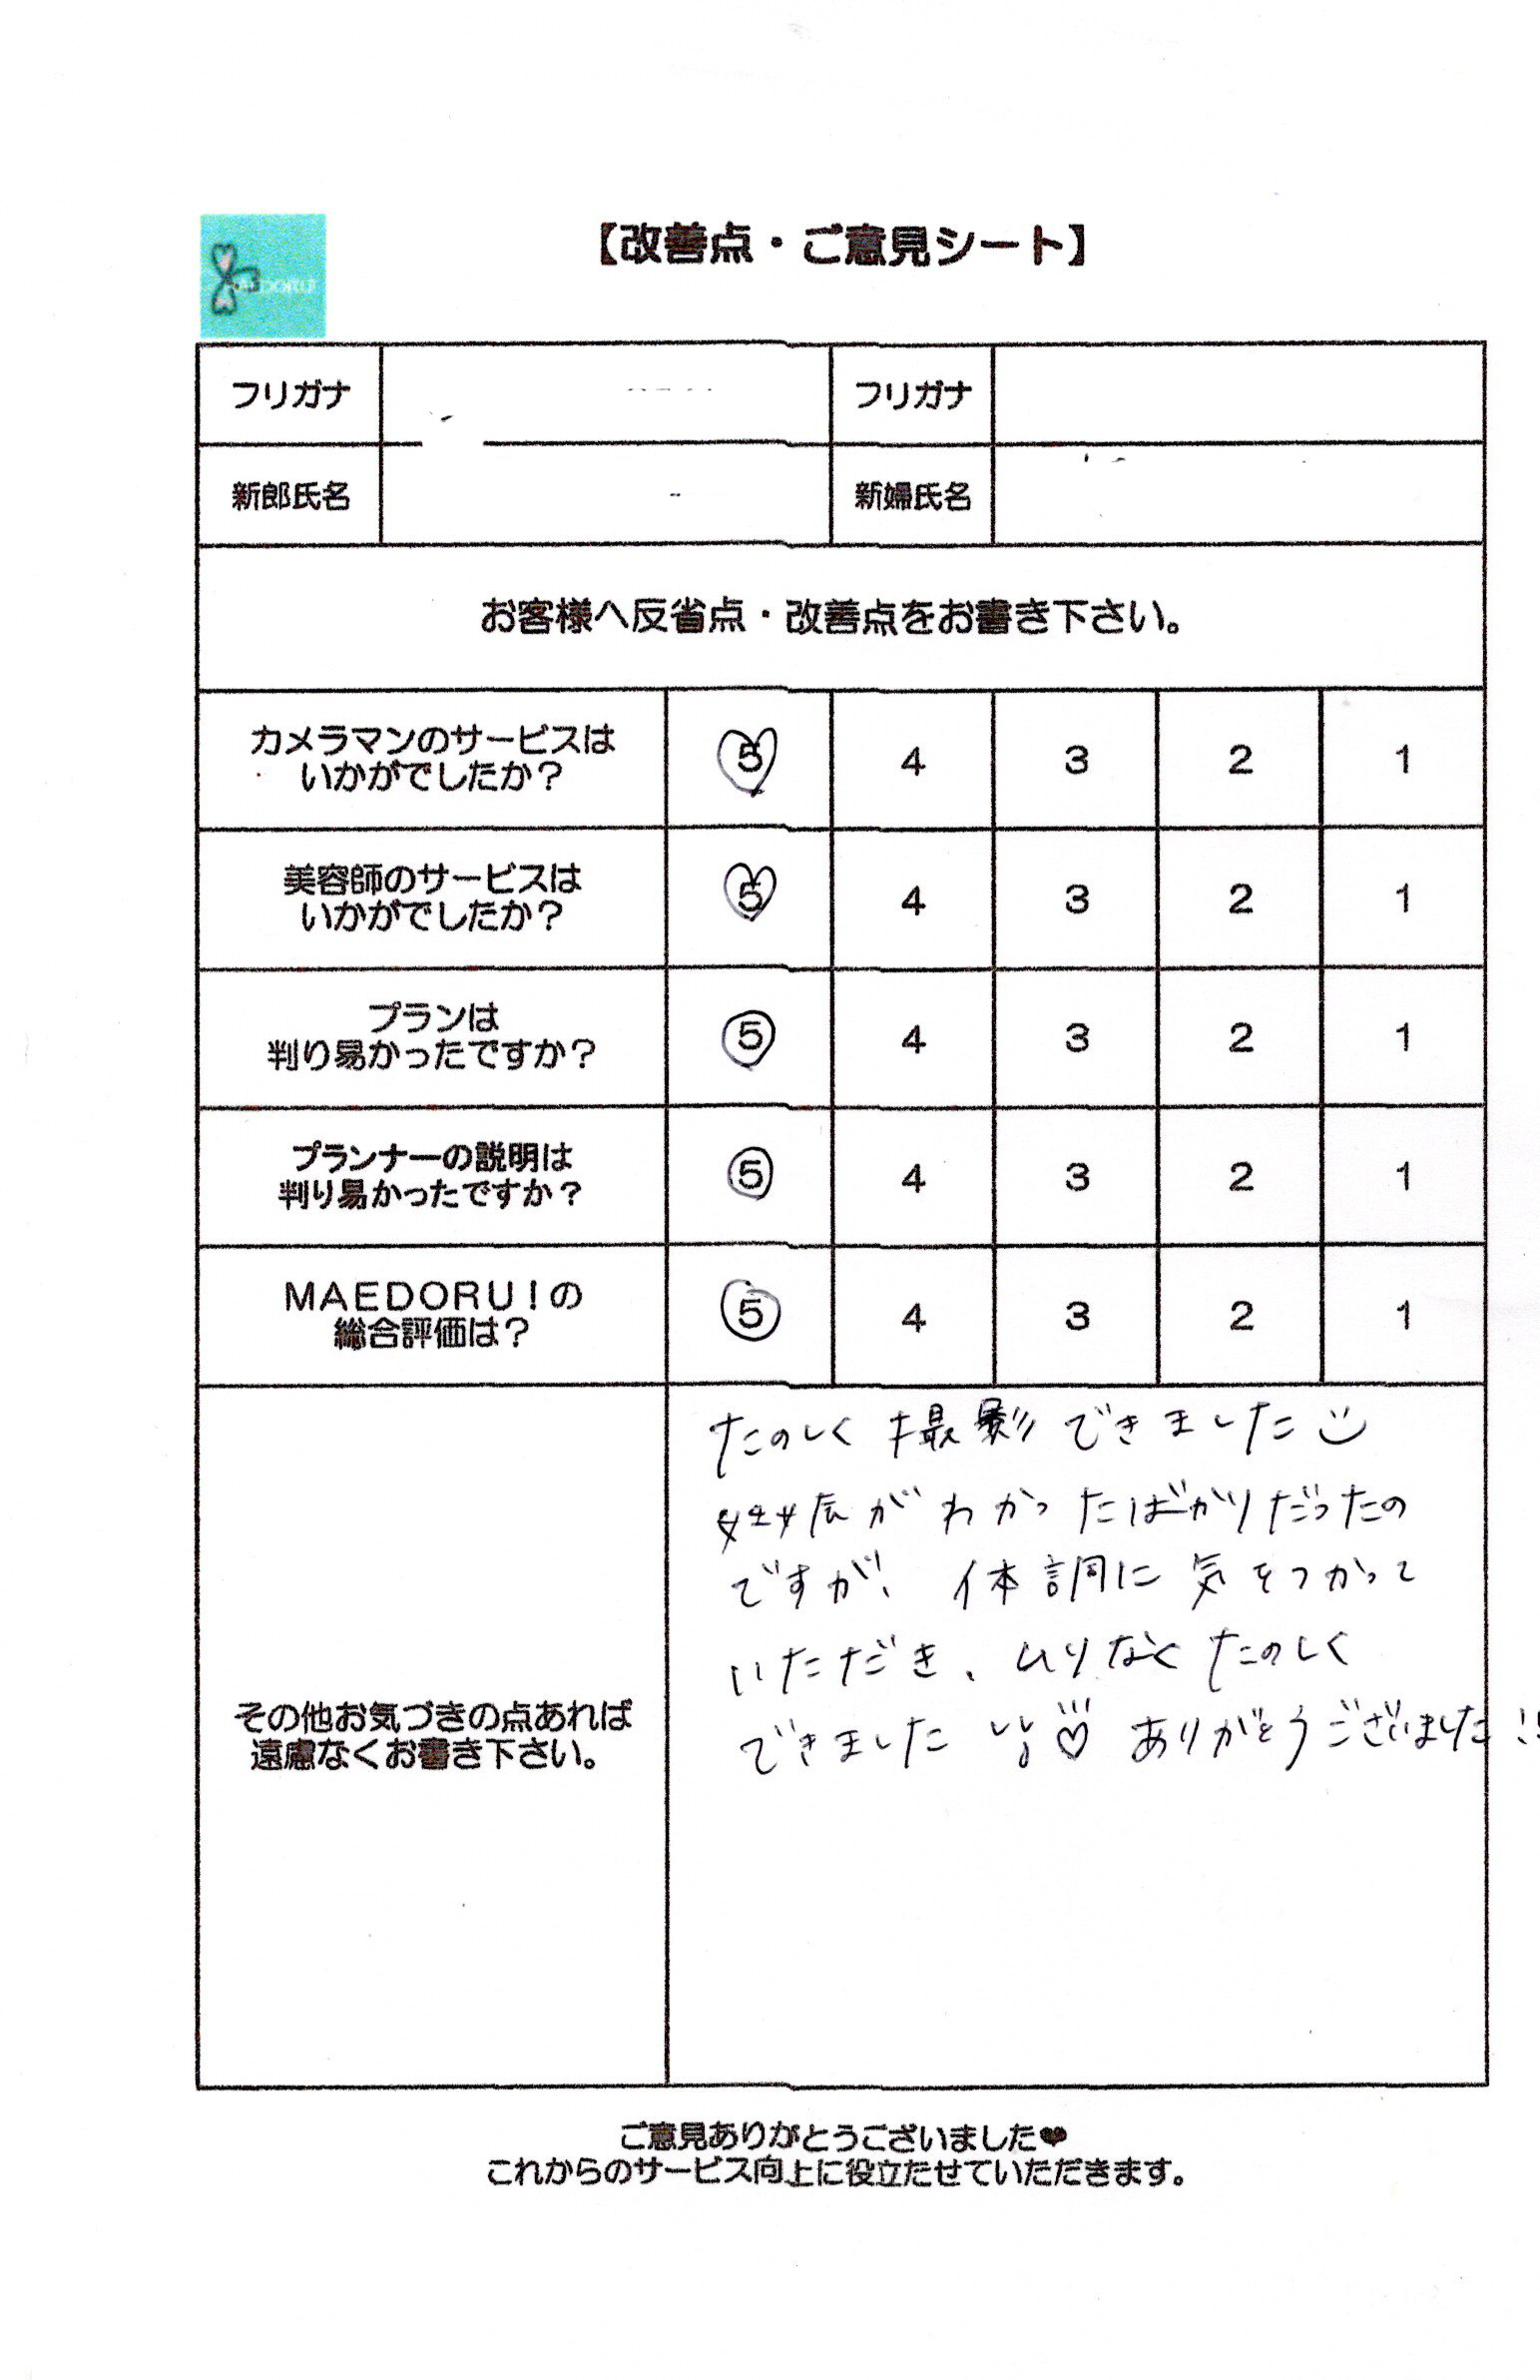 【改善点・ご意見シート】
フリガナ
フリガナ
新郎氏名
新婦氏名
お客様へ反省点・改善点をお書き下さい。
カメラマンのサービスは
いかがでしたか?
5 4 3 2 1
美容師のサービスは
いかがでしたか?
5 4 3 2 1
プランは
判り易かったですか?
5 4 3 2 1
プランナーの説明は
判り易かったですか?
5 4 3 2 1
MAEDORU!の
総合評価は?
5 4 3 2 1
その他お気づきの点あれば
遠慮なくお書き下さい。
たのしく撮影できました
妊娠がわかったばかりだったの
ですが、体調に気をつかって
いただき、ムリなくたのしく
できました♡ありがとうございました!!
ご意見ありがとうございました♥
これからのサービス向上に役立たせていただきます。